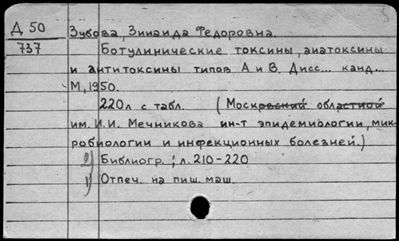 Д 50
737
Зубова, Зинаида Федоровна.
Ботулинические токсины, анатоксины
и антитоксины типов А и В. Дисс... канд...
М, 1950.
220л с табл. (Московский областной
им. И.И. Мечникова ин-т эпидемиологии, мик-
робиологии и инфекционных болезней.)
2) Библиогр.: л. 210-220
1) Отпеч. на пиш. маш.